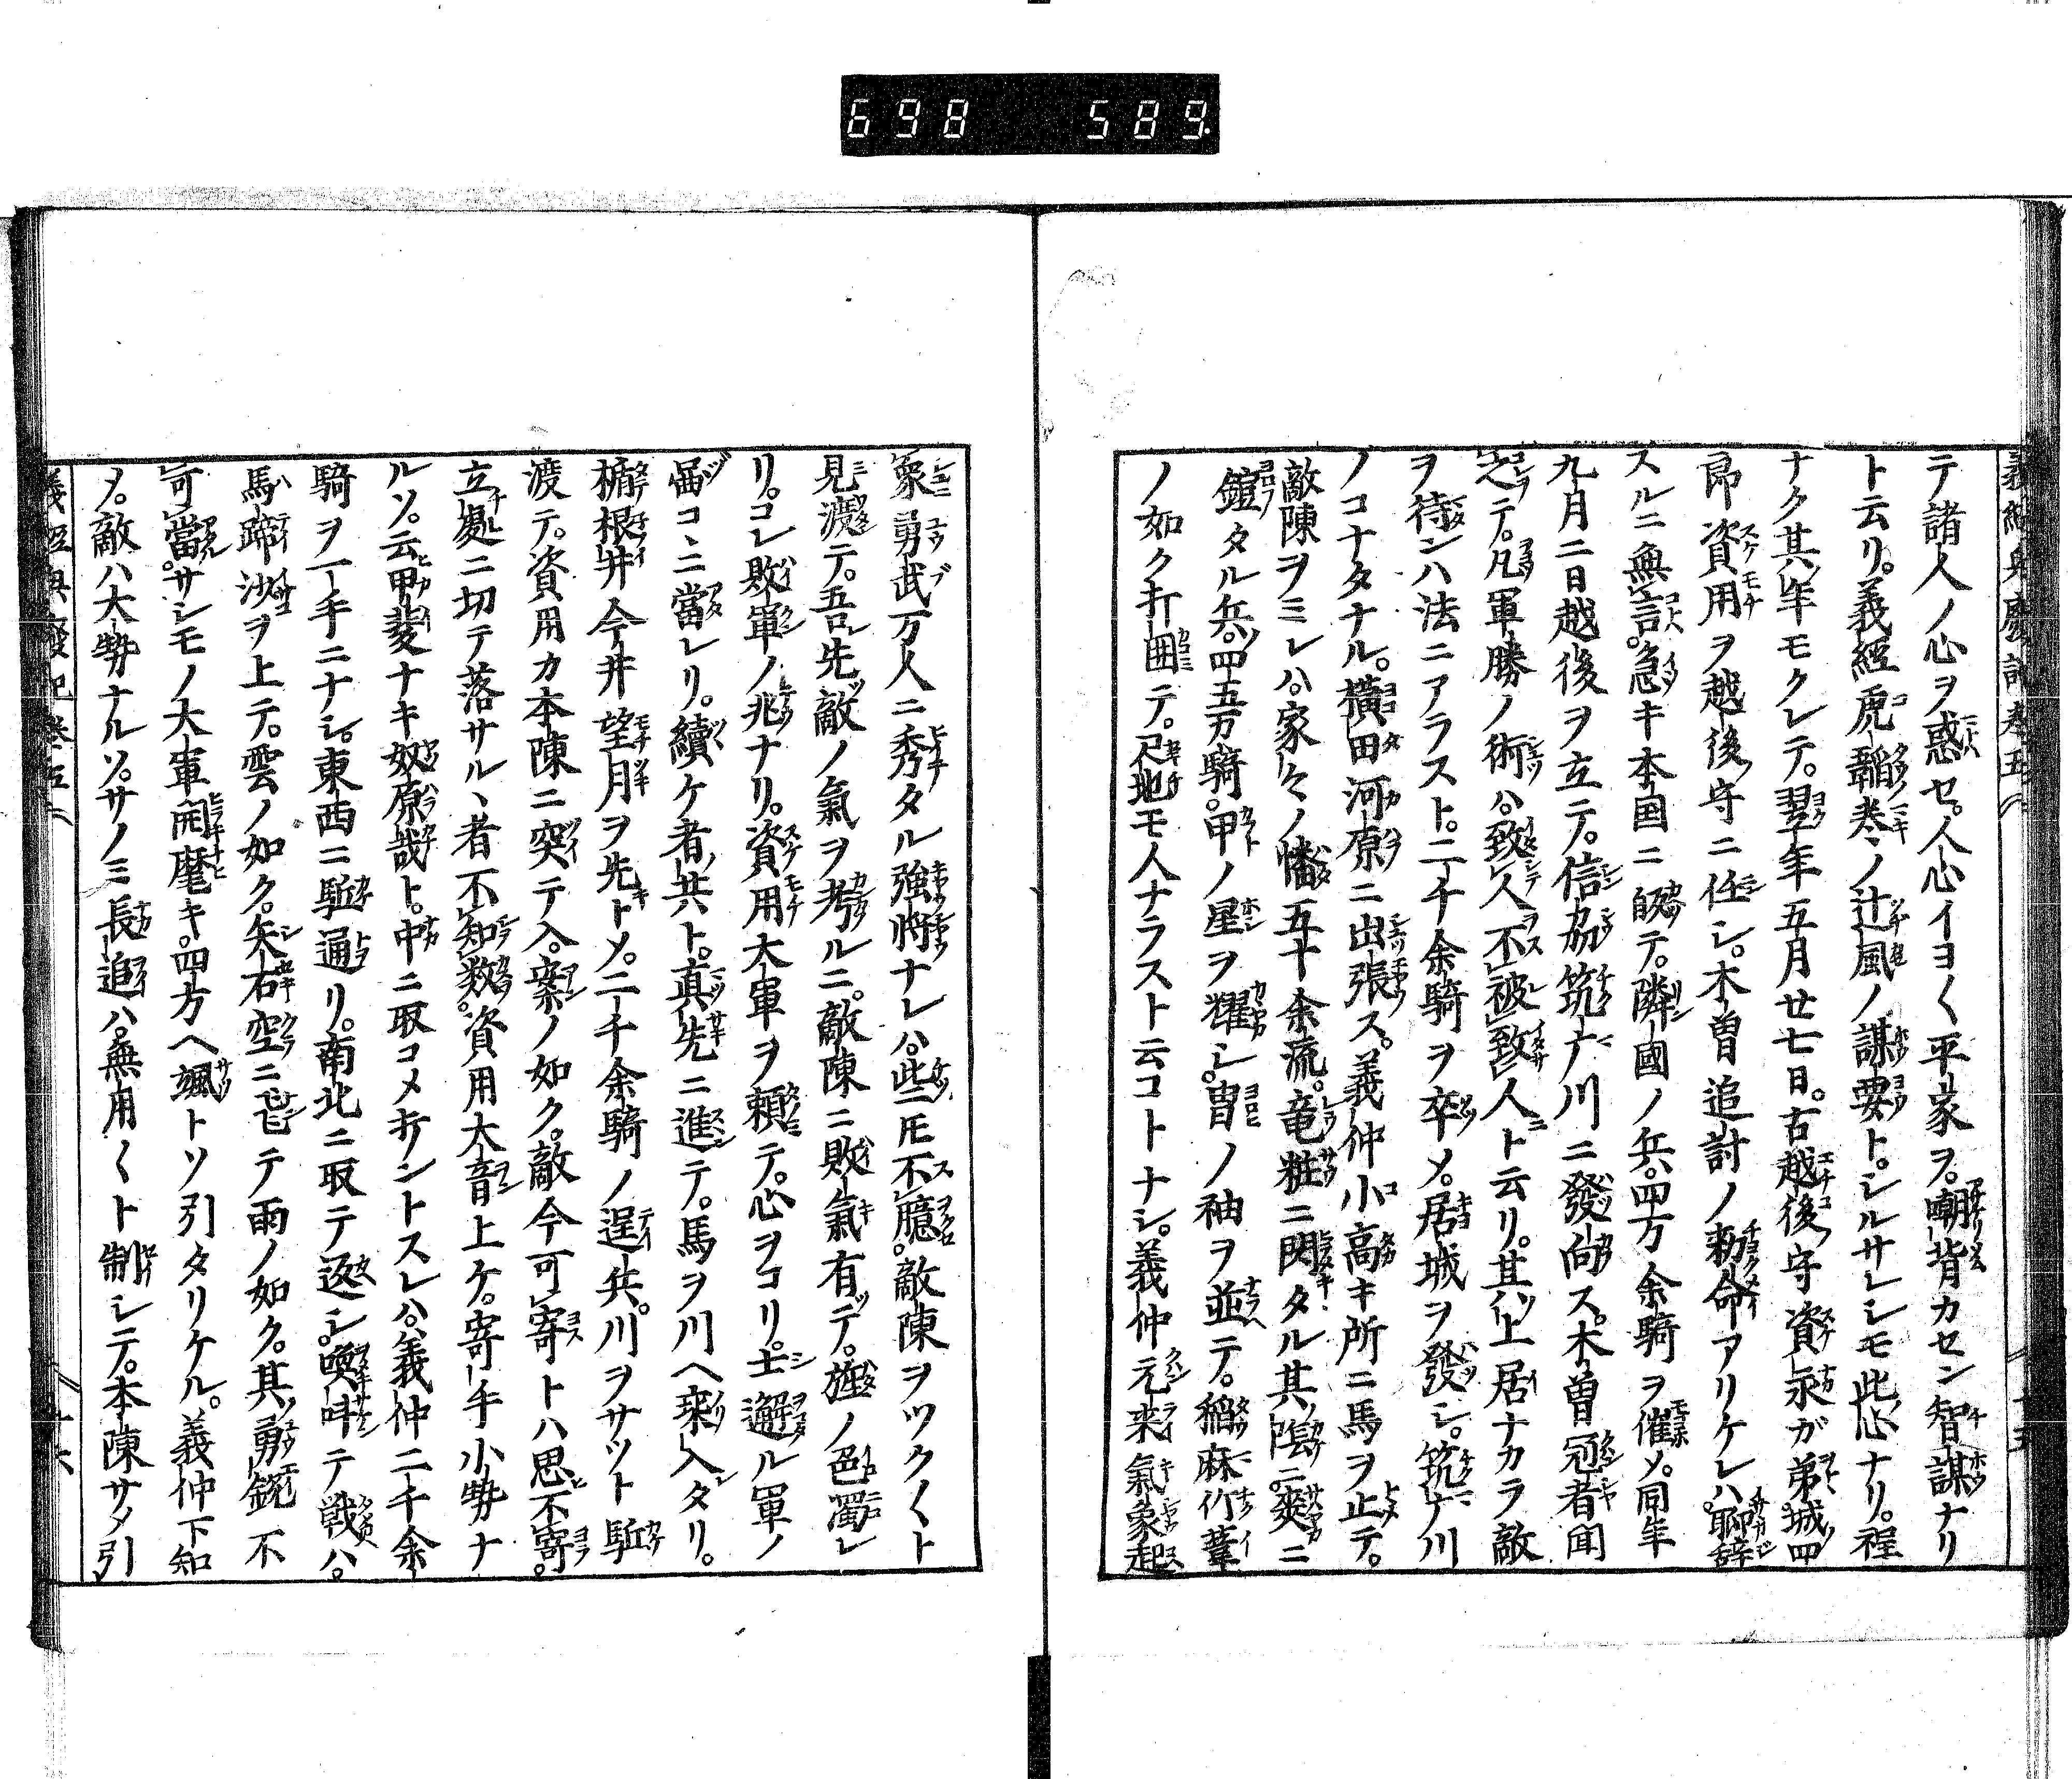 698 589.
義經興廢記卷五
テ諸人ノ心ヲ惑セ。人心イヨ〱平家ヲ。嘲背カセン智謀ナリ
ト云リ。義經虎韜卷ノ辻風ノ謀要ト。シルサレシモ此心ナリ。程
ナク其年モクレテ。翌年五月廿七日。右越後守資永ガ弟城四
郎資用ヲ越後守ニ任シ。木曽追討ノ勅命アリケレハ。聊辞
スルニ無言。急キ本国ニ皈テ。隣國ノ兵。四万余騎ヲ催メ。同年
九月二日越後ヲ立テ。信刕筑广川ニ發向ス。木曽冠者聞
之テ。凡軍勝ノ術ハ。致人不被致人ト云リ。其上居ナカラ敵
ヲ待ンハ法ニアラスト。二千余騎ヲ卒メ。居城ヲ發シ。筑广川
ノコナタナル。横田河原ニ出張ス。義仲小高キ所ニ馬ヲ止テ。
敵陳ヲミレハ。家々ノ幡五十余流。竜粧ニ閃タル其陰ニ。爽ニ
鎧タル兵。四五万騎。甲ノ星ヲ耀シ。冑ノ袖ヲ並テ。稲麻竹葦
ノ如ク打囲テ。尺地モ人ナラスト云コトナシ。義仲元来氣象起
象勇武万人ニ秀タル強将ナレハ。些トモ不臆。敵陳ヲツク〱ト
見渡テ。吾先敵ノ氣ヲ考ルニ。敵陳ニ敗氣有テ。旌ノ色濁レ
リ。コレ敗軍ノ兆ナリ。資用大軍ヲ頼テ。心ヲコリ。士邂ル軍ノ
畄コヽニ當レリ。續ケ者共ト。真先ニ進テ。馬ヲ川ヘ乗入タリ。
楯根井今井望月ヲ先トメ。二千余騎ノ逞兵。川ヲサツト駈
渡テ。資用カ本陳ニ突テ入。案ノ如ク。敵今可寄トハ思不寄。
立處ニ切テ落サルヽ者不知数。資用大音上ケ。寄手小勢ナ
ルソ。云甲斐ナキ奴原哉ト。中ニ取コメ打ントスレハ。義仲二千余
騎ヲ一手ニナシ。東西ニ駈通リ。南北ニ取テ返シ。喚呌テ戦ハ。
馬蹄沙ヲ上テ。雲ノ如ク。矢石空ニ乱テ雨ノ如ク。其勇鋭不
可當。サシモノ大軍開靡キ。四方ヘ颯トソ引タリケル。義仲下知
メ。敵ハ大勢ナルソ。サノミ長追ハ。無用〱ト制シテ。本陳サメ引
義經興廢記卷五
十六